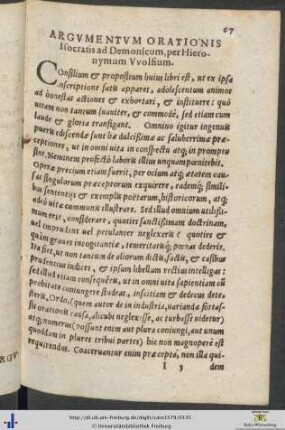 67
ARGVMENTVM ORATIONIS
Isocratis ad Demonicum, per Hiero-
nymum VVolfium.
COnsilium & propositum huius libri est, ut ex ipsa
inscriptione satis apparet, adolescentum animos
ad honestas actiones & exhortari, & instituere: quò
uitam non tantum suauiter, & commodè, sed etiam cum
laude & gloria transigant. Omnino igitur ingenuis
pueris ediscenda sunt hæc dulcissima ac saluberrima præ-
ceptiones, ut in omni uita in conspectu atq; in promptu
sint. Neminem profectò laboris illius unquam pœnitebit.
Operæ precium etiam fuerit, per ocium atq; ætatem cau-
sas singulorum præceptorum exquirere, eademq; simili-
bus sententijs & exemplis poëtarum, historicorum, atq;
adeò uitæ communis illustrare. Sed illud omnium utilissi-
mum erit, considerare, quoties sanctissimam doctrinam,
uel imprudens uel petulanter neglexeris: & quoties &
quàm graues incogitantiæ, temeritatisq; pœnas dederis.
Ita fiet, ut non tantum de aliorum dictis, factis, & casibus
prudentius iudices, & ipsum libellum rectius intelligas:
sed illud etiam consequêris, ut in omni uita sapientiam cū
probitate coniungere studeas, inscitiam & dedecus dete-
steris. Ordo, (quem autor de industria, uarianda fortas-
sis orationis causa, alicubi neglexisse, ac turbasse uidetur)
atq; numerus (possunt enim aut plura coniungi, aut unum
quoddam in plures tribui partes) hic non magnoperè est
requirendus. Coaceruantur enim præcepta, non illa qui-
I 3 dem
RGV
http://dl.ub.uni-freiburg.de/diglit/cato1579/0135
© Universitätsbibliothek Freiburg